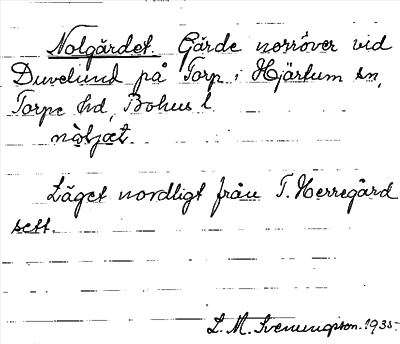 Nolgärdet. Gärde norröver vid
Duvelund på Torp i Hjärtum sn,
Torpe hd, Bohus l.
nòḷjæ̀t.
Läget nordligt från T. Herregård
sett.
L. M. Svenungsson. 1935.